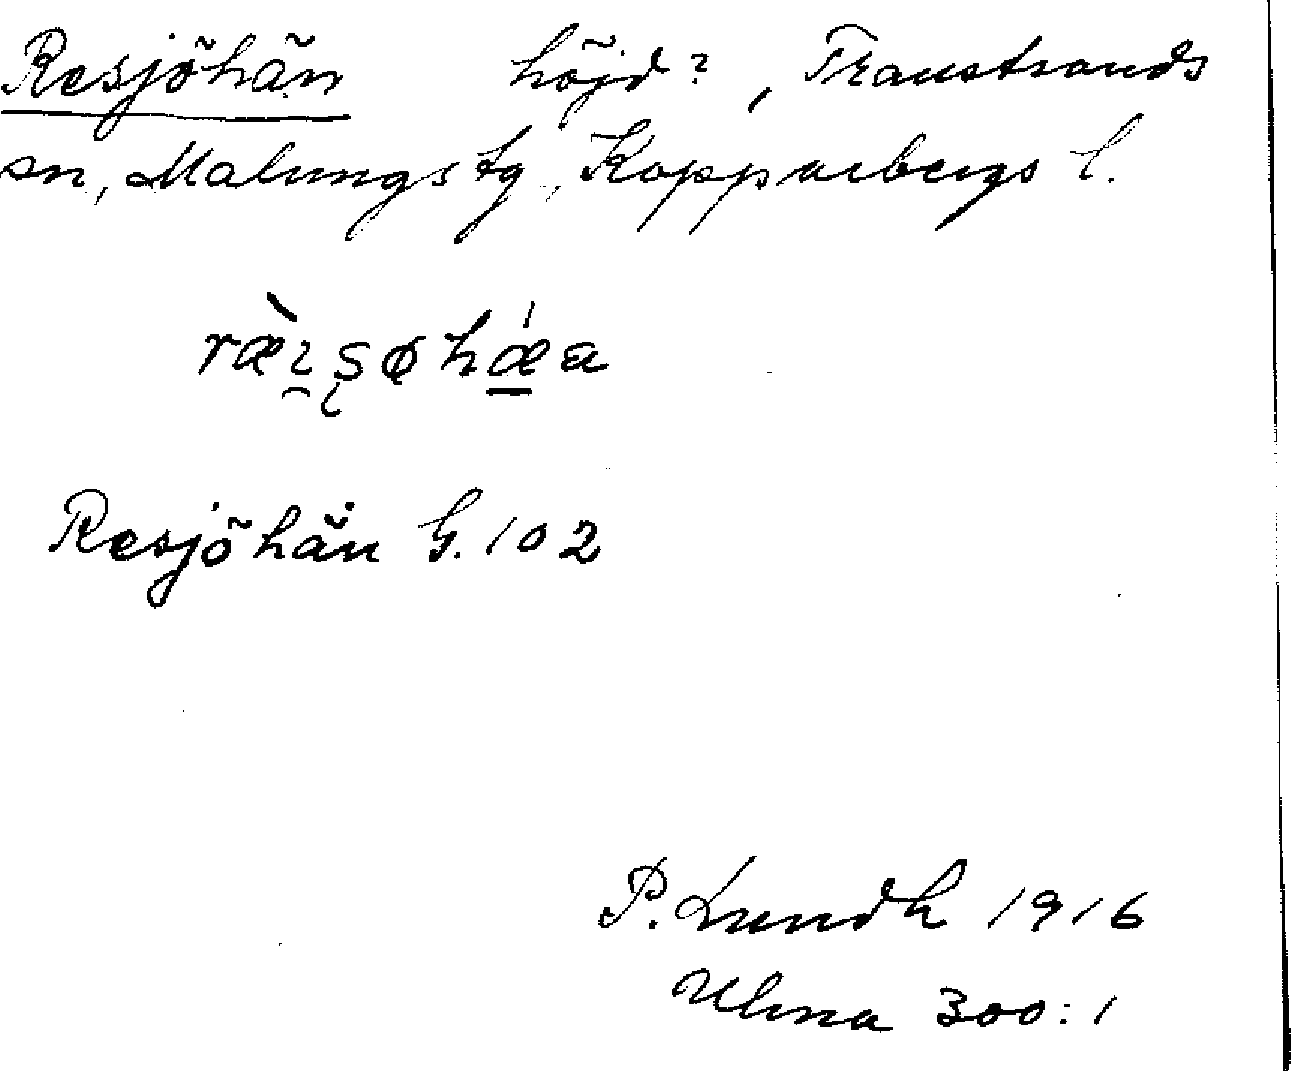 Resjöhän höjd?, Transtrands
sn, Malungs tg, Kopparbergs l.
ræ̀ɿ̯ʂøhǽa
Resjöhän G. 102
P. Lundh 1916
Ulma 300:1